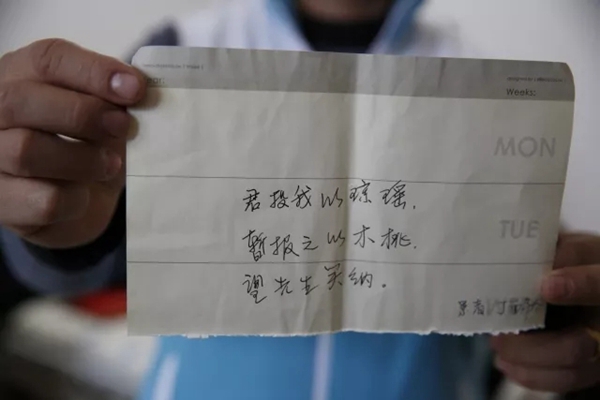 Weeks:
MON
君投我以琼瑶.
TUE
暂报之以木桃.
望先生笑纳。